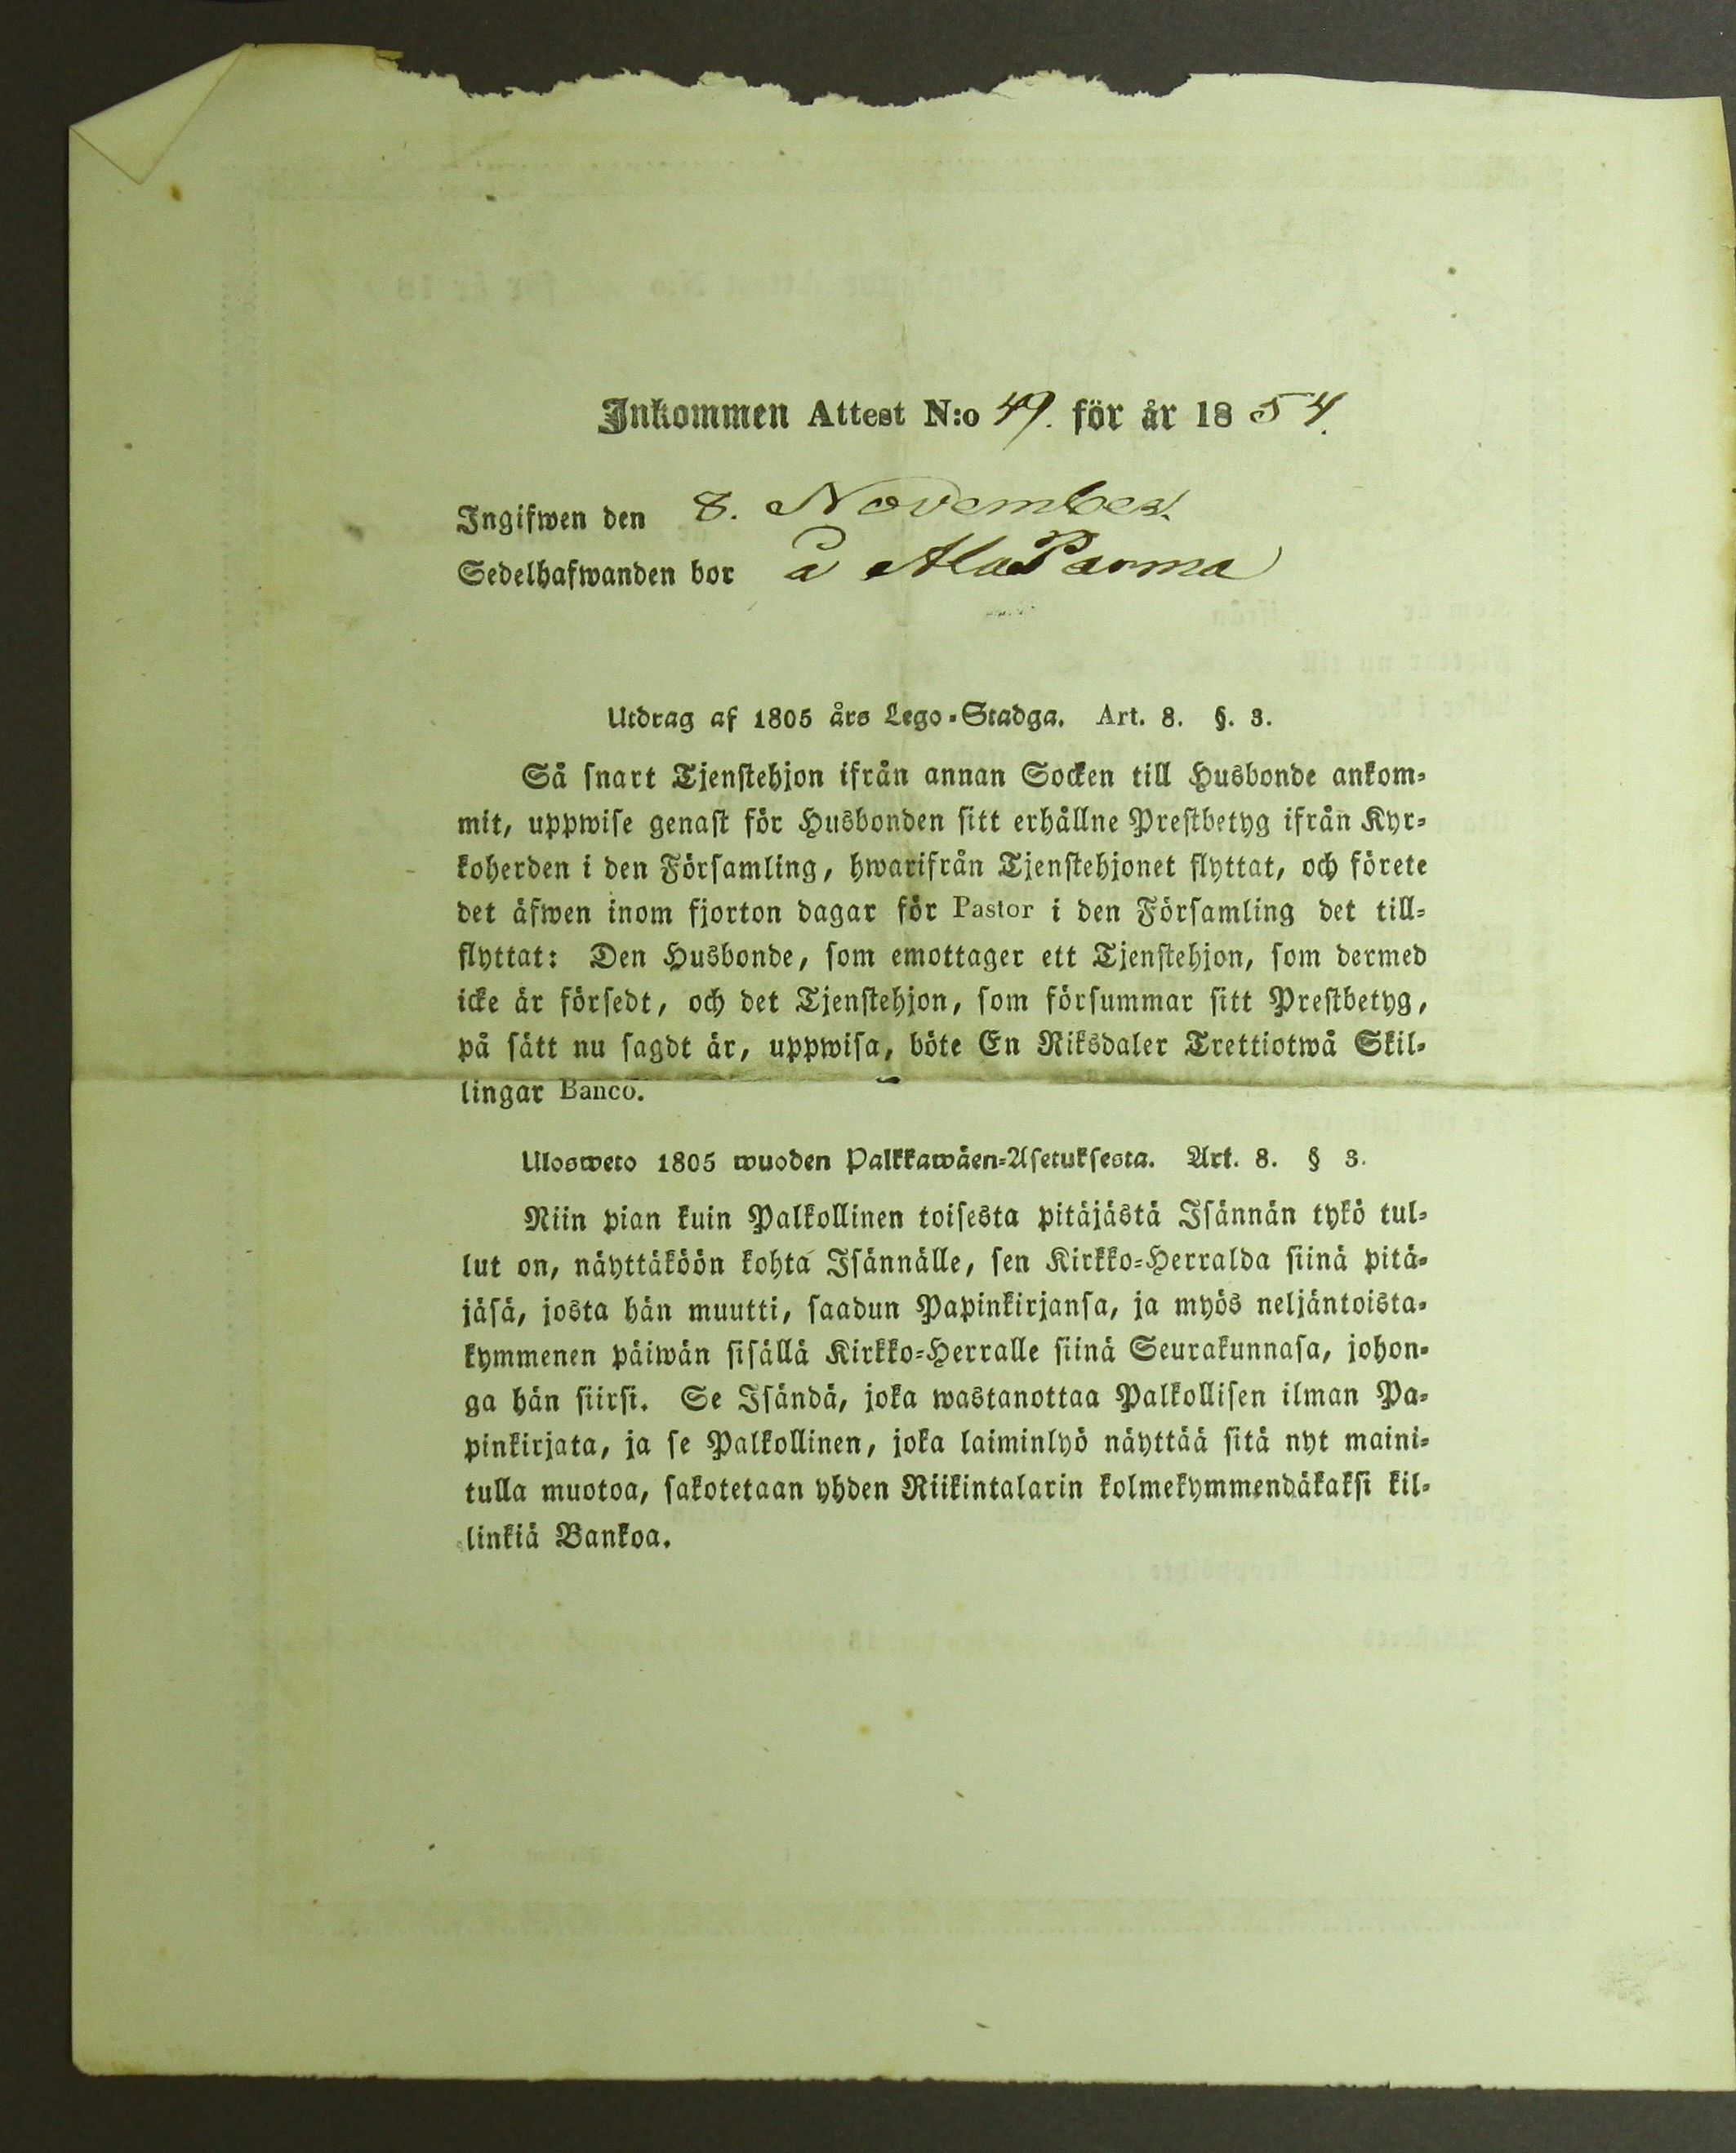 Inkommen Attest N:o 49. för år 1854.
Ingifwen den 8. November.
Sedelhafwanden bor å Ala Parma
Utdrag af 1805 års Lego-Stadga. Art. 8. §. 3.
Så snart Tjenstehjon ifrån annan Socken till Husbonde ankom-
mit, uppwise genast för Husbonden sitt erhållne Prestbetyg ifrån Kyr-
koherden i den Församling, hwarifrån Tjenstehjonet flyttat, och förete
det äfwen inom fjorton dagar för Pastor i den Församling det till-
flyttat: Den Husbonde, som emottager ett Tjenstehjon, som dermed
icke är försedt, och det Tjenstehjon, som försummar sitt Prestbetyg,
på sätt nu sagdt är, uppwisa, böte En Riksdaler Trettiotwå Skil-
lingar Banco.
Ulosweto 1805 wuoden Palkkawäen-Asetuksesta. Art. 8. § 3.
Niin pian kuin Palkollinen toisesta pitäjästä Isännän tykö tul-
lut on, näyttäköön kohta Isännälle, sen Kirkko-Herralda siinä pitä-
jäsä, josta hän muutti, saadun Papinkirjansa, ja myös neljäntoista-
kymmenen päiwän sisällä Kirkko-Herralle siinä Seurakunnasa, johon-
ga hän siirsi. Se Isändä, joka wastanottaa Palkollisen ilman Pa-
pinkirjata, ja se Palkollinen, joka laiminlyö näyttää sitä nyt maini-
tulla muotoa, sakotetaan yhden Riikintalarin kolmekymmendäkaksi kil-
linkiä Bankoa.